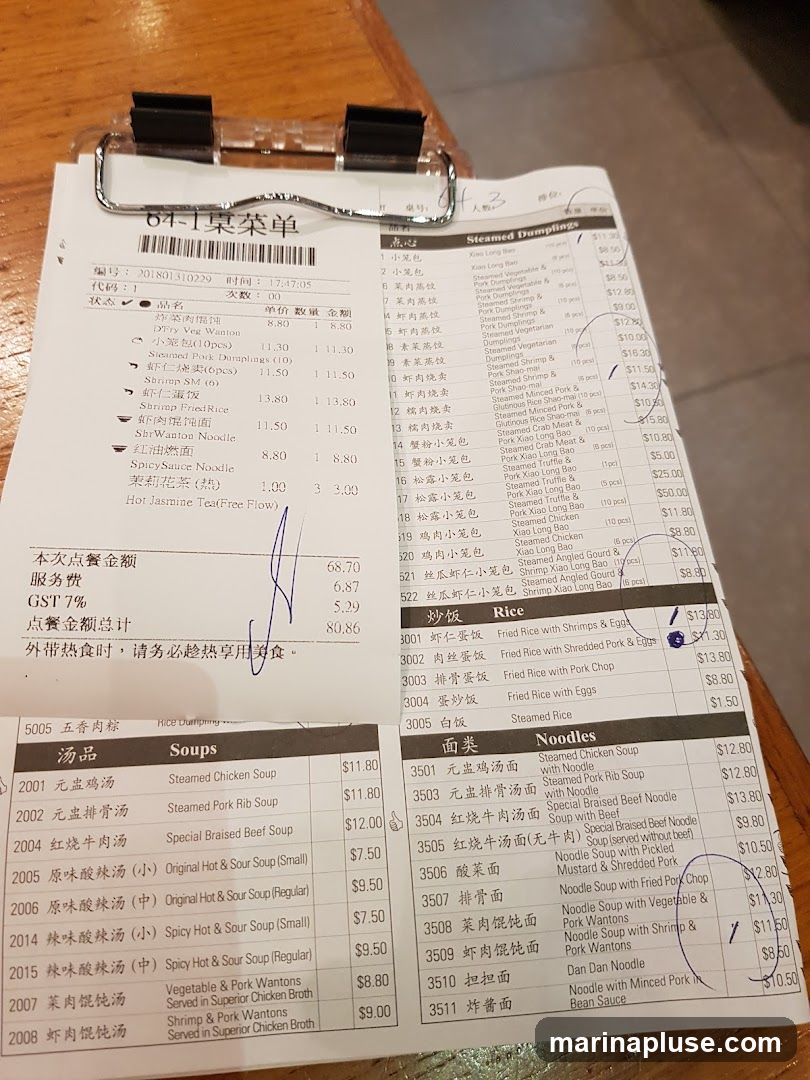 64-1桌菜单
编号: 201801310229 时间: 17:47:05
代码: 1 次数: 00
状态 品名 单价 数量 金额
炸菜肉馄饨 8.80 1 8.80
D'Fry Veg Wanton
小笼包(10pcs) 11.30 1 11.30
Steamed Pork Dumplings (10)
虾仁烧卖(6pcs) 11.50 1 11.50
Shrimp SM (6)
虾仁蛋饭 13.80 1 13.80
Shrimp FriedRice
虾肉馄饨面 11.50 1 11.50
ShrWanton Noodle
红油燃面 8.80 1 8.80
SpicySauce Noodle
茉莉花茶 (热) 1.00 3 3.00
Hot Jasmine Tea(Free Flow)
本次点餐金额 68.70
服务费 6.87
GST 7% 5.29
点餐金额总计 80.86
外带热食时，请务必趁热享用美食。
5005 五香肉粽
汤品 Soups
2001 元盅鸡汤 Steamed Chicken Soup $11.80
2002 元盅排骨汤 Steamed Pork Rib Soup $11.80
2004 红烧牛肉汤 Special Braised Beef Soup $12.00
2005 原味酸辣汤 (小) Original Hot & Sour Soup (Small) $7.50
2006 原味酸辣汤 (中) Original Hot & Sour Soup (Regular) $9.50
2014 辣味酸辣汤 (小) Spicy Hot & Sour Soup (Small) $7.50
2015 辣味酸辣汤 (中) Spicy Hot & Sour Soup (Regular) $9.50
2007 菜肉馄饨汤 Vegetable & Pork Wantons $8.80
Served in Superior Chicken Broth
2008 虾肉馄饨汤 Shrimp & Pork Wantons $9.00
Served in Superior Chicken Broth
桌号: 64 人数: 3
品名
点心 Steamed Dumplings
小笼包 Xiao Long Bao (10 pcs) $11.30
小笼包 Xiao Long Bao $8.50
菜肉蒸饺 Steamed Vegetable & Pork Dumplings
菜肉蒸饺 Steamed Vegetable & Pork Dumplings $8.50
虾肉蒸饺 Steamed Shrimp & Pork Dumplings $12.80
虾肉蒸饺 Steamed Shrimp & Pork Dumplings $9.00
素菜蒸饺 Steamed Vegetarian Dumplings $12.80
素菜蒸饺 Steamed Vegetarian Dumplings $10.00
10 虾肉烧卖 Steamed Shrimp & Pork Shao-mai (10 pcs) $16.30
11 虾肉烧卖 Steamed Shrimp & Pork Shao-mai (6 pcs) $11.50
12 糯肉烧卖 Steamed Minced Pork & Glutinous Rice Shao-mai (10 pcs) $14.30
13 糯肉烧卖 Steamed Minced Pork & Glutinous Rice Shao-mai (6 pcs) $10.50
14 蟹粉小笼包 Steamed Crab Meat & Pork Xiao Long Bao (10 pcs) $15.80
15 蟹粉小笼包 Steamed Crab Meat & Pork Xiao Long Bao (6 pcs) $10.80
松露小笼包 Steamed Truffle & Pork Xiao Long Bao (1pc) $5.00
17 松露小笼包 Steamed Truffle & Pork Xiao Long Bao (5 pcs) $25.00
18 松露小笼包 Steamed Truffle & Pork Xiao Long Bao (10 pcs) $50.00
519 鸡肉小笼包 Steamed Chicken Xiao Long Bao (10 pcs) $11.80
520 鸡肉小笼包 Steamed Chicken Xiao Long Bao (6 pcs) $8.80
521 丝瓜虾仁小笼包 Steamed Angled Gourd & Shrimp Xiao Long Bao (10 pcs) $11.80
522 丝瓜虾仁小笼包 Steamed Angled Gourd & Shrimp Xiao Long Bao (6 pcs) $8.80
炒饭 Rice
3001 虾仁蛋饭 Fried Rice with Shrimps & Eggs $13.80
3002 肉丝蛋饭 Fried Rice with Shredded Pork & Eggs $11.30
3003 排骨蛋饭 Fried Rice with Pork Chop $13.80
3004 蛋炒饭 Fried Rice with Eggs $8.80
3005 白饭 Steamed Rice $1.50
面类 Noodles
3501 元盅鸡汤面 Steamed Chicken Soup with Noodle $12.80
3503 元盅排骨汤面 Steamed Pork Rib Soup with Noodle $12.80
3504 红烧牛肉汤面 Special Braised Beef Noodle Soup with Beef $13.80
3505 红烧牛汤面(无牛肉) Special Braised Beef Noodle Soup (served without beef) $9.80
3506 酸菜面 Noodle Soup with Pickled Mustard & Shredded Pork $10.50
3507 排骨面 Noodle Soup with Fried Pork Chop $12.80
3508 菜肉馄饨面 Noodle Soup with Vegetable & Pork Wantons $11.30
3509 虾肉馄饨面 Noodle Soup with Shrimp & Pork Wantons $11.50
3510 担担面 Dan Dan Noodle $8.50
3511 炸酱面 Noodle with Minced Pork in Bean Sauce $10.50
marinapluse.com